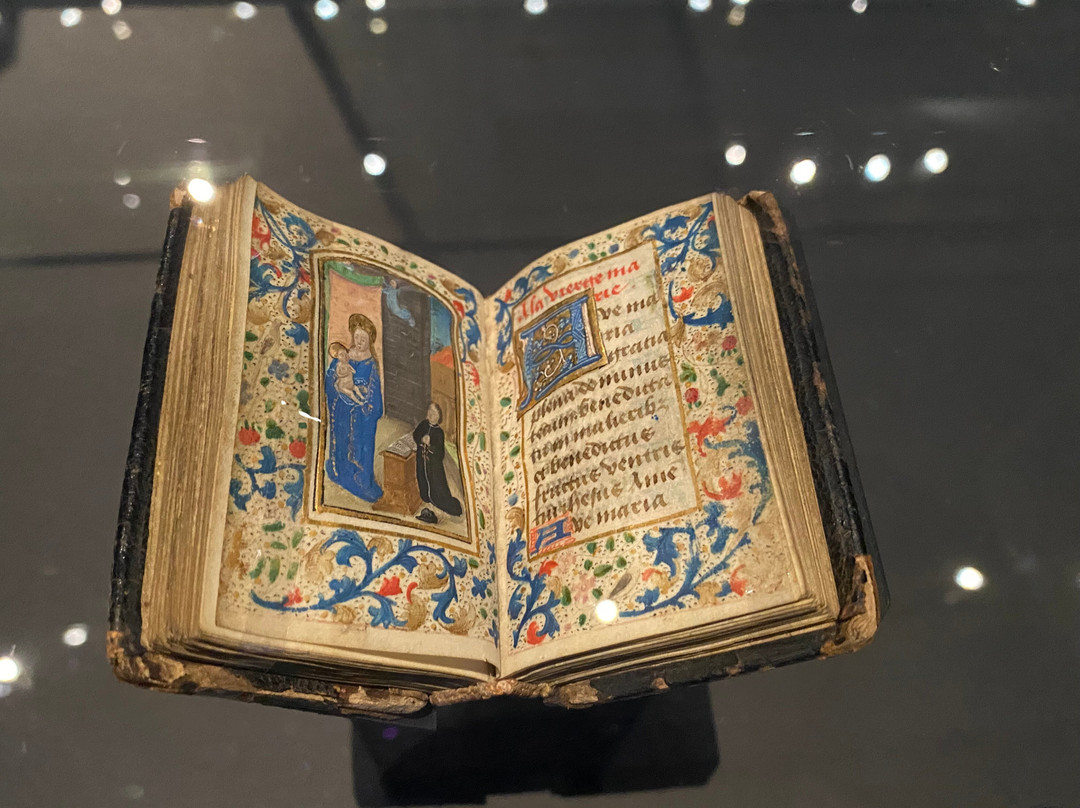 A la vierge ma
rie
Ave ma
ria
gratia
plena dominus
tecum benedicta
tu in mulierib
et benedictus
fructus ventris
tui Jesus Ame
Ave maria